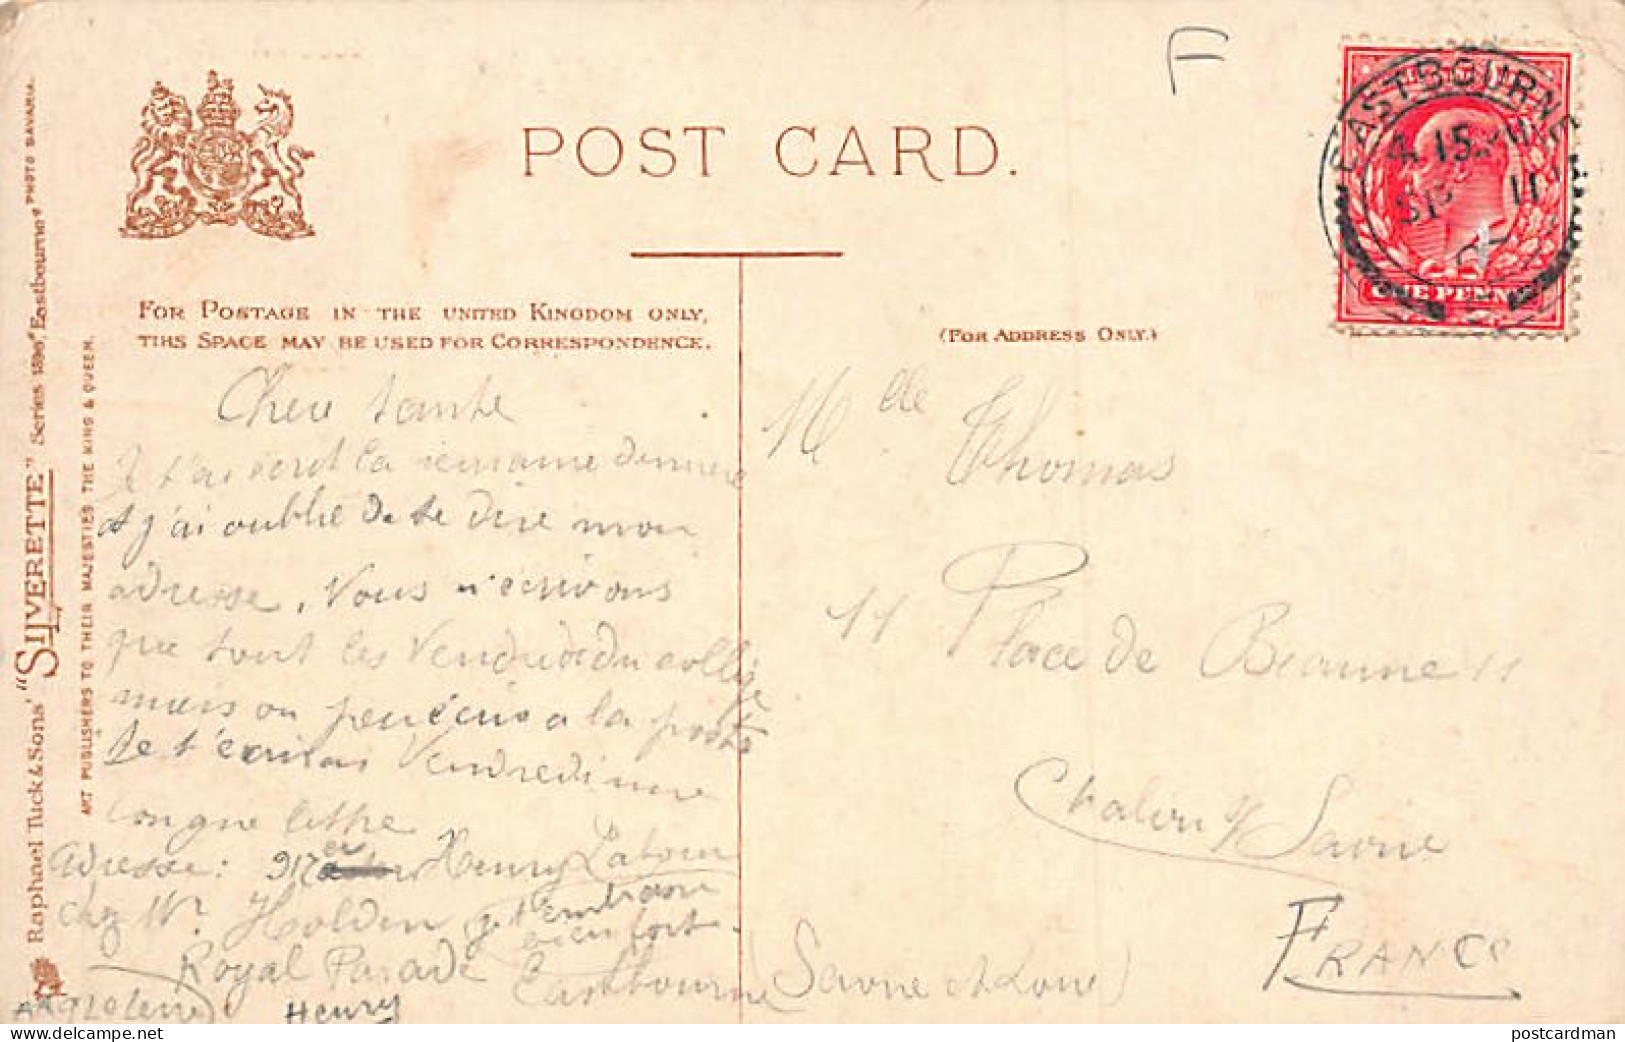 F
POST CARD.
EASTBOURNE
4.15 PM
SP 11
07
ONE PENNY
FOR POSTAGE IN THE UNITED KINGDOM ONLY,
THIS SPACE MAY BE USED FOR CORRESPONDENCE.
(FOR ADDRESS ONLY.)
Raphael Tuck & Sons' "SILVERETTE" Series 1896, Eastbourne. PHOTO BAVARIA.
ART PUBLISHERS TO THEIR MAJESTIES THE KING & QUEEN.
Chere tante
la semaine derniere
et j'ai oublié de te dire mon
adresse. Nous n'écrivons
que tout les Vendredi du college
mais on peu écrir a la poste
Je t'ecrirais Vendredi une
longue lettre
Adresse: Mr Henry Latour
chez Mr Holden je t'embrasse
bien fort.
Royal Parade Eastbourne
Angleterre Henry
Mlle Thomas
11 Place de Beaune 11
Chalon s/ Saone
(Saone et Loire)
FRANCE
postcardman